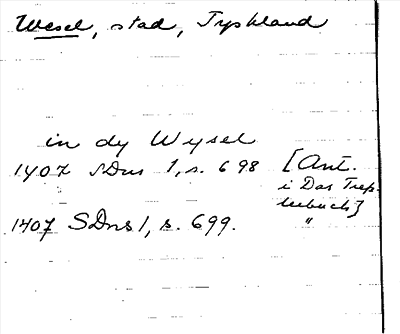 Wesel, stad, Tyskland
in dy Wysel
1407 SDns 1, s. 698 [Ant.
i Das Tresslerbuch]
1407 SDns 1, s. 699. "